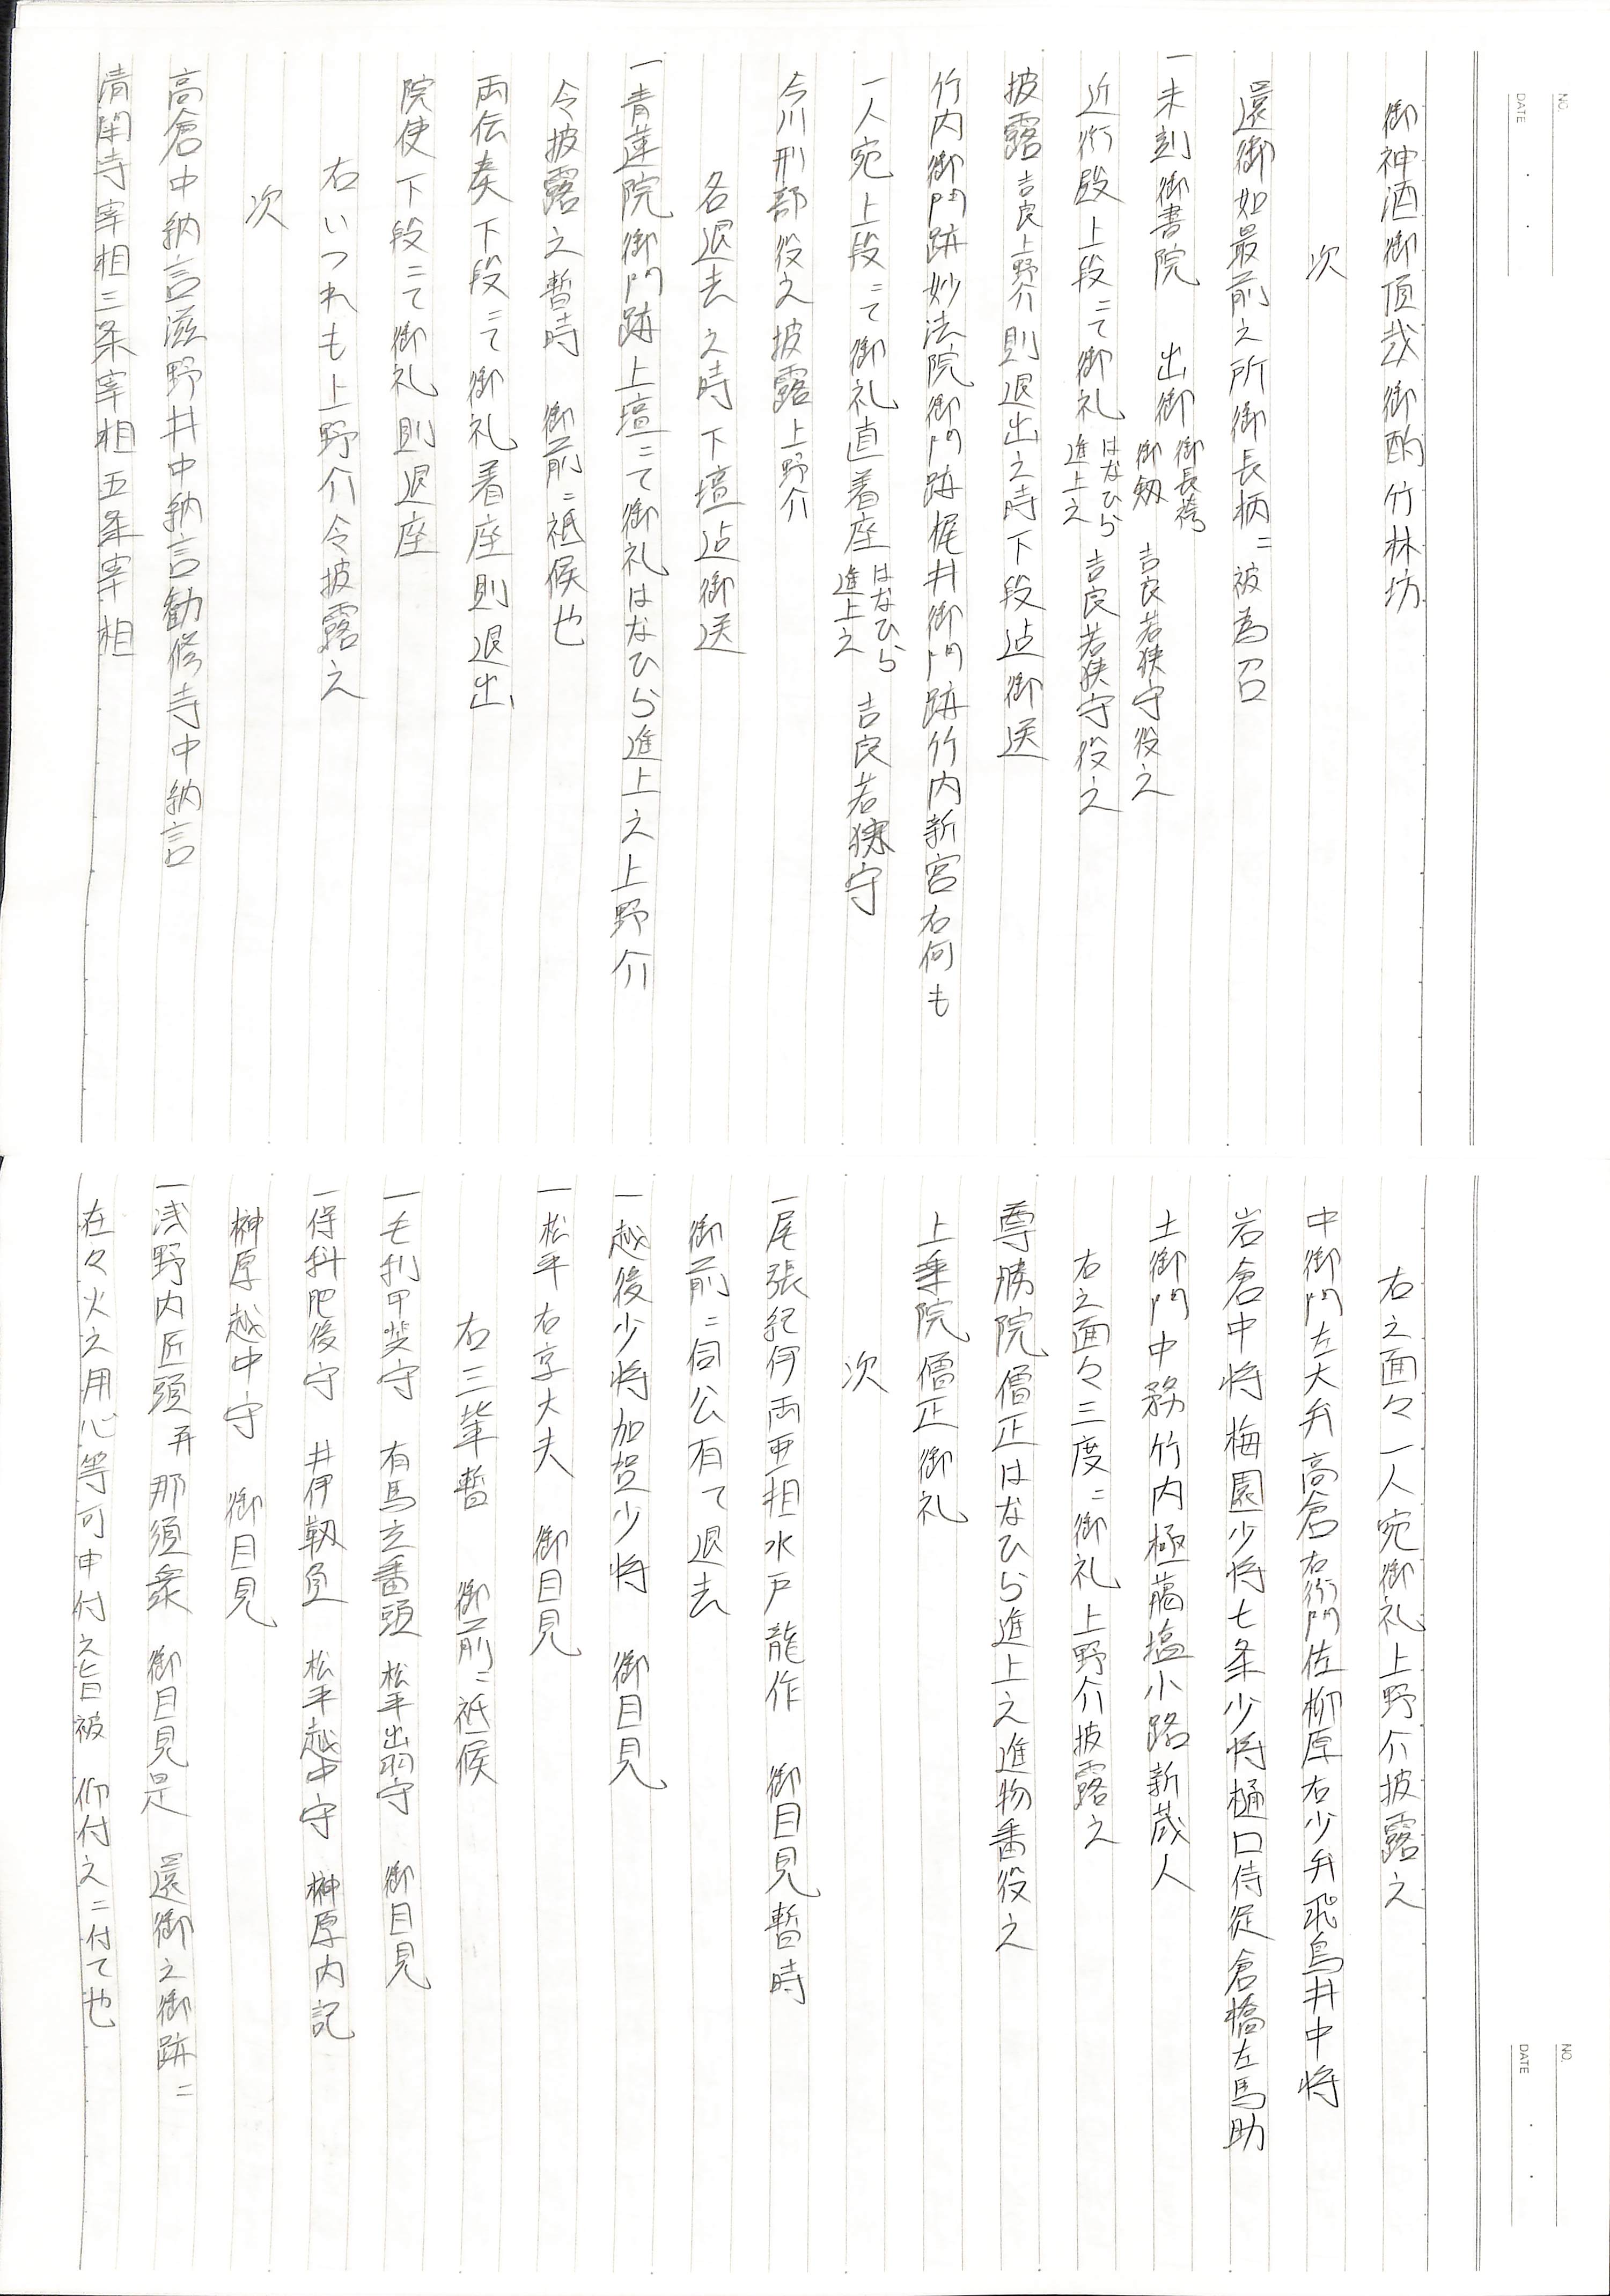 NO.
DATE
御神酒御頂戴御酌竹林坊
次
還御如最前之所御長柄ニ被為召
一未刻御書院　出御 御長袴 御剱　吉良若狭守役之
近衛殿上段ニて御礼 はなひら 進上之　吉良若狭守役之
披露吉良上野介則退出之時下段迠御送
竹内御門跡妙法院御門跡梶井御門跡竹内新宮右何も
一人宛上段ニて御礼直着座 はなひら 進上之　吉良若狭守
今川刑部役之披露上野介
各退去之時下壇迠御送
一青蓮院御門跡上壇ニて御礼はなひら進上之上野介
令披露之暫時　御前ニ祗候也
両伝奏下段ニて御礼着座則退出
院使下段ニて御礼則退座
右いつれも上野介令披露之
次
高倉中納言滋野井中納言勧修寺中納言
清閑寺宰相三条宰相五条宰相
NO.
DATE
右之面々一人宛御礼上野介披露之
中御門左大弁高倉右衛門佐柳原右少弁飛鳥井中将
岩倉中将梅園少将七条少将樋口侍従倉橋左馬助
土御門中務竹内極﨟塩小路新蔵人
右之面々三度ニ御礼上野介披露之
尊勝院僧正はなひら進上之進物番役之
上乗院僧正御礼
次
一尾張紀伊両亜相水戸龍作　御目見暫時
御前ニ伺公有て退去
一越後少将加賀少将　御目見
一松平右京大夫　御目見
右三輩暫　御前ニ祗候
一毛利甲斐守　有馬玄番頭　松平出羽守　御目見
一保科肥後守　井伊靱負　松平越中守　榊原内記
榊原越中守　御目見
一浅野内匠頭并那須衆　御目見是　還御之御跡ニ
在々火之用心等可申付之旨被　仰付之ニ付て也